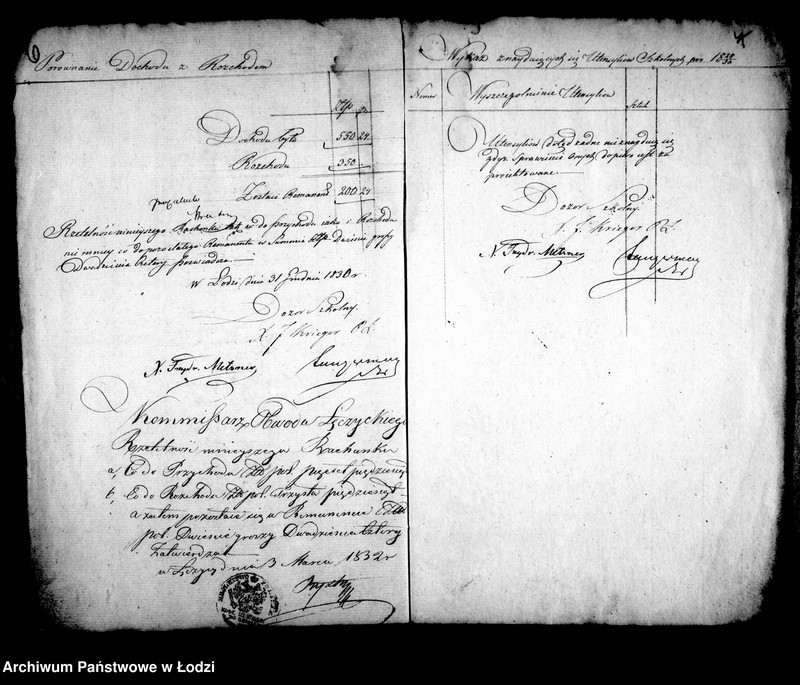 Porownanie Dochodu z Rozchodem
Złp gr
Dochodu było 550 24
Rozchodu 350 —
pozostało
Zostaie Remanent 200 24
Rzetelność ninieyszego Rachunku tak co do Przychodu iako i Rozchodu
nie mniey co do pozostałego Remanentu w Summie Złp Dwieście groszy
Dwadzieścia cztery poświadcza.
W Łodzi dnia 31 Grudnia 1830 r.
Dozor Szkolny.
X. J. Krieger P. Ł.
N. Fryd. Metzner
Kommissarz Obwodu Łęczyckiego
Rzetelność ninieyszego Rachunku
a, Co do Przychodu Złt pol. pięćset pięćdziesiąt
b, Co do Rozchodu Złt pol. Trzysta pięćdziesiąt
a zatem pozostaie się w Remanencie Złt
pol. Dwieście groszy Dwadzieścia cztery
Zatwierdza
w Łęczycy dnia 3 Marca 1832 r
Wykaz znayduiących się Utensyliow Szkolnych pro 1829/30
Numer
Wyszczegolnienie Utensyliow
Sztuk
Utensyliow dotąd żadne nie znayduią się
gdyż sprawienie onych dopiero iest za
proiektowane
Dozor Szkolny.
X. J. Krieger P. Ł.
N. Fryd. Metzner
Archiwum Państwowe w Łodzi